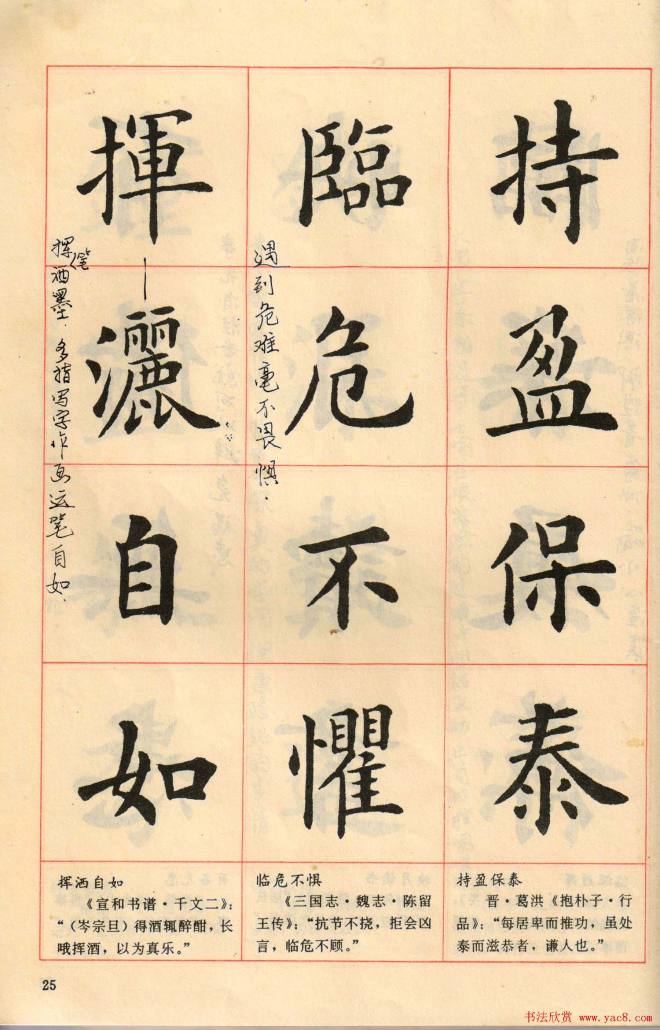 持盈保泰
臨危不懼
遇到危难毫不畏惧.
揮灑自如
挥笔洒墨.多指写字作画运笔自如.
持盈保泰
晋·葛洪《抱朴子·行
品》:“每居卑而推功,虽处
泰而滋恭者,谦人也。”
临危不惧
《三国志·魏志·陈留
王传》:“抗节不挠,拒会凶
言,临危不顾。”
挥洒自如
《宣和书谱·千文二》:
“(岑宗旦)得酒辄醉酣,长
哦挥洒,以为真乐。”
25
书法欣赏 www.yac8.com